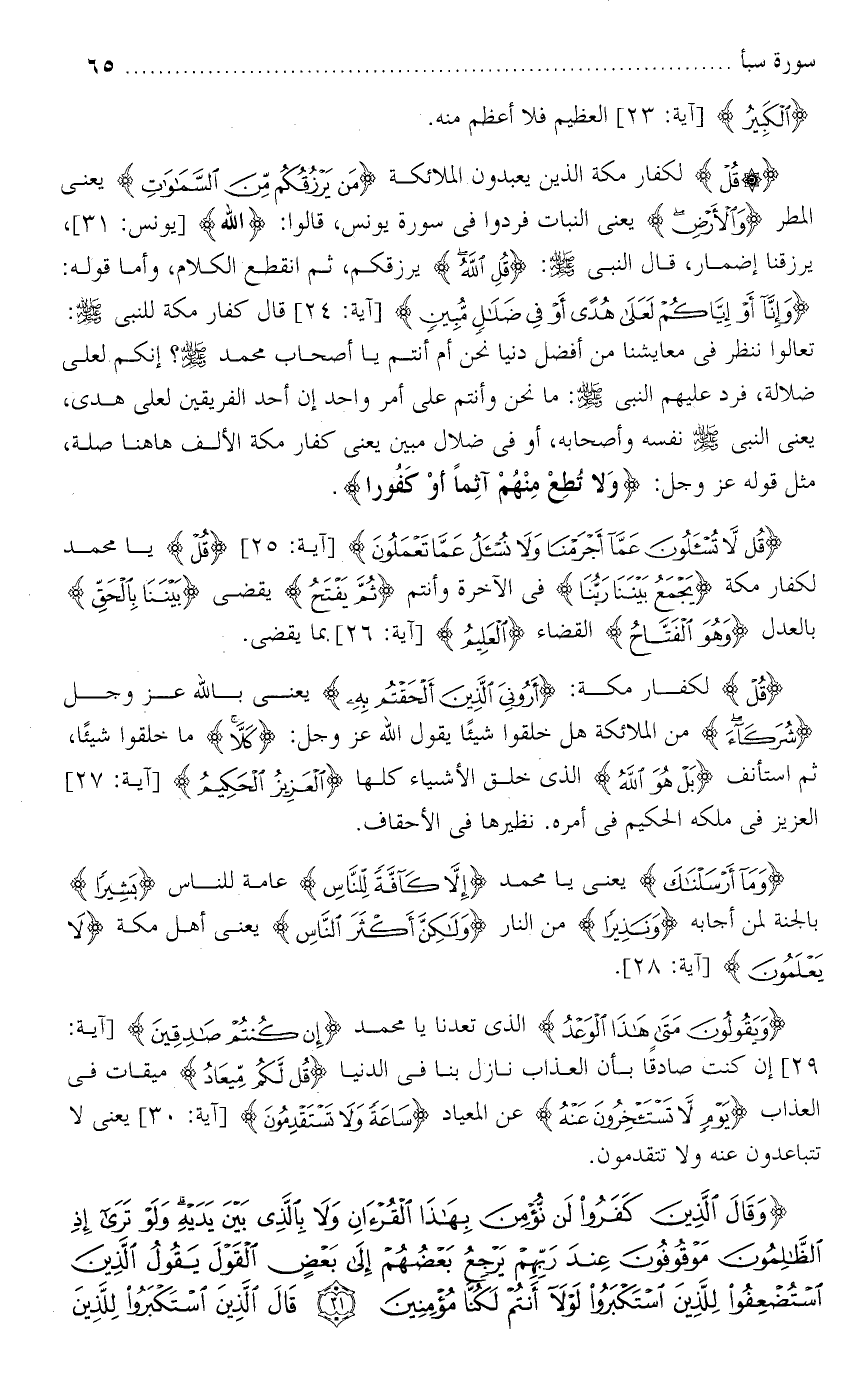 سورة سبأ ........................................................................ ٦٥
﴿ٱلْكَبِيرُ﴾ [آية: ٢٣] العظيم فلا أعظم منه.
﴿۞ قُلْ﴾ لكفار مكة الذين يعبدون الملائكة ﴿مَن يَرْزُقُكُم مِّنَ ٱلسَّمَٰوَٰتِ﴾ يعنى
المطر ﴿وَٱلْأَرْضِۖ﴾ يعنى النبات فردوا فى سورة يونس، قالوا: ﴿الله﴾ [يونس: ٣١]،
يرزقنا إضمار، قال النبى ﷺ: ﴿قُلِ ٱللَّهُۖ﴾ يرزقكم، ثم انقطع الكلام، وأما قوله:
﴿وَإِنَّآ أَوْ إِيَّاكُمْ لَعَلَىٰ هُدًى أَوْ فِى ضَلَٰلٍ مُّبِينٍ﴾ [آية: ٢٤] قال كفار مكة للنبى ﷺ:
تعالوا ننظر فى معايشنا من أفضل دنيا نحن أم أنتم يا أصحاب محمد ﷺ؟ إنكم لعلى
ضلالة، فرد عليهم النبى ﷺ: ما نحن وأنتم على أمر واحد إن أحد الفريقين لعلى هدى،
يعنى النبى ﷺ نفسه وأصحابه، أو فى ضلال مبين يعنى كفار مكة الألف هاهنا صلة،
مثل قوله عز وجل: ﴿وَلا تُطِعْ مِنْهُمْ آثِماً أوْ كَفُورا﴾.
﴿قُل لَّا تُسْـَٔلُونَ عَمَّآ أَجْرَمْنَا وَلَا نُسْـَٔلُ عَمَّا تَعْمَلُونَ﴾ [آية: ٢٥] ﴿قُلْ﴾ يا محمد
لكفار مكة ﴿يَجْمَعُ بَيْنَنَا رَبُّنَا﴾ فى الآخرة وأنتم ﴿ثُمَّ يَفْتَحُ﴾ يقضى ﴿بَيْنَنَا بِٱلْحَقِّ﴾
بالعدل ﴿وَهُوَ ٱلْفَتَّاحُ﴾ القضاء ﴿ٱلْعَلِيمُ﴾ [آية: ٢٦] بما يقضى.
﴿قُلْ﴾ لكفار مكة: ﴿أَرُونِىَ ٱلَّذِينَ أَلْحَقْتُم بِهِۦ﴾ يعنى بالله عز وجل
﴿شُرَكَآءَۖ﴾ من الملائكة هل خلقوا شيئًا يقول الله عز وجل: ﴿كَلَّاۚ﴾ ما خلقوا شيئًا،
ثم استأنف ﴿بَلْ هُوَ ٱللَّهُ﴾ الذى خلق الأشياء كلها ﴿ٱلْعَزِيزُ ٱلْحَكِيمُ﴾ [آية: ٢٧]
العزيز فى ملكه الحكيم فى أمره. نظيرها فى الأحقاف.
﴿وَمَآ أَرْسَلْنَٰكَ﴾ يعنى يا محمد ﴿إِلَّا كَآفَّةً لِّلنَّاسِ﴾ عامة للناس ﴿بَشِيرًا﴾
بالجنة لمن أجابه ﴿وَنَذِيرًا﴾ من النار ﴿وَلَٰكِنَّ أَكْثَرَ ٱلنَّاسِ﴾ يعنى أهل مكة ﴿لَا
يَعْلَمُونَ﴾ [آية: ٢٨].
﴿وَيَقُولُونَ مَتَىٰ هَٰذَا ٱلْوَعْدُ﴾ الذى تعدنا يا محمد ﴿إِن كُنتُمْ صَٰدِقِينَ﴾ [آية:
٢٩] إن كنت صادقًا بأن العذاب نازل بنا فى الدنيا ﴿قُل لَّكُم مِّيعَادُ﴾ ميقات فى
العذاب ﴿يَوْمٍ لَّا تَسْتَـْٔخِرُونَ عَنْهُ﴾ عن المعياد ﴿سَاعَةً وَلَا تَسْتَقْدِمُونَ﴾ [آية: ٣٠] يعنى لا
تتباعدون عنه ولا تتقدمون.
﴿وَقَالَ ٱلَّذِينَ كَفَرُوا۟ لَن نُّؤْمِنَ بِهَٰذَا ٱلْقُرْءَانِ وَلَا بِٱلَّذِى بَيْنَ يَدَيْهِۗ وَلَوْ تَرَىٰٓ إِذِ
ٱلظَّٰلِمُونَ مَوْقُوفُونَ عِندَ رَبِّهِمْ يَرْجِعُ بَعْضُهُمْ إِلَىٰ بَعْضٍ ٱلْقَوْلَ يَقُولُ ٱلَّذِينَ
ٱسْتُضْعِفُوا۟ لِلَّذِينَ ٱسْتَكْبَرُوا۟ لَوْلَآ أَنتُمْ لَكُنَّا مُؤْمِنِينَ ٣١ قَالَ ٱلَّذِينَ ٱسْتَكْبَرُوا۟ لِلَّذِينَ